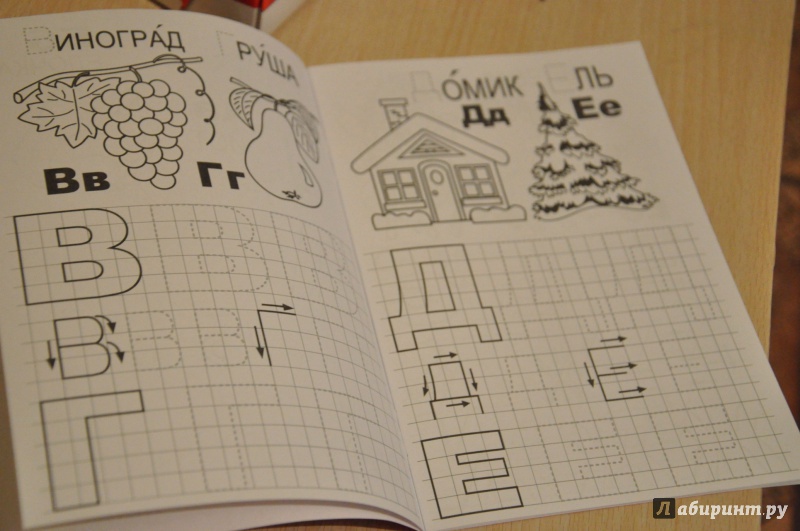 ВИНОГРА́Д
ГРУ́ША
Вв
Гг
В В В
В В В Г
Г Г Г Г
ДО́МИК
ЕЛЬ
Дд
Ее
Д Д Д Д
Д Д Е Е
Е Е Е Е
Лабиринт.ру